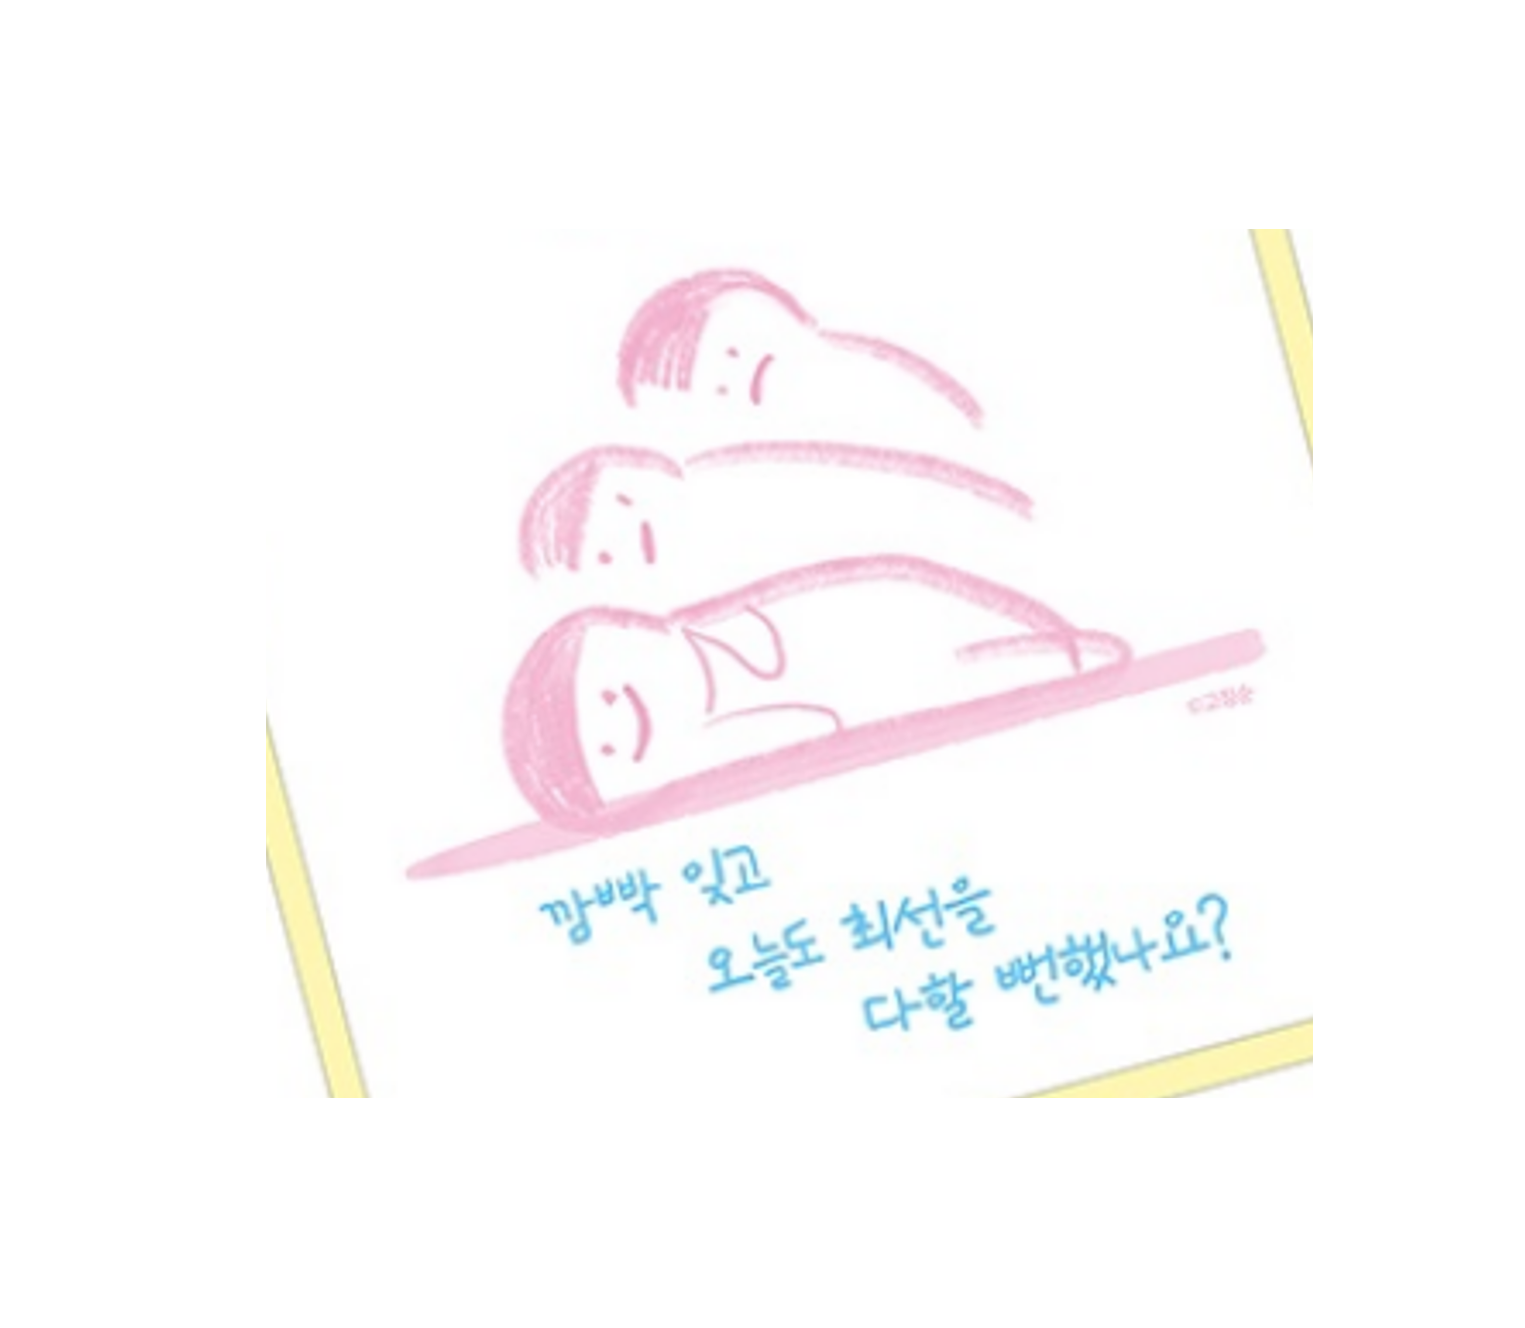 ©고정순
깜빡 잊고
오늘도 최선을
다할 뻔했나요?